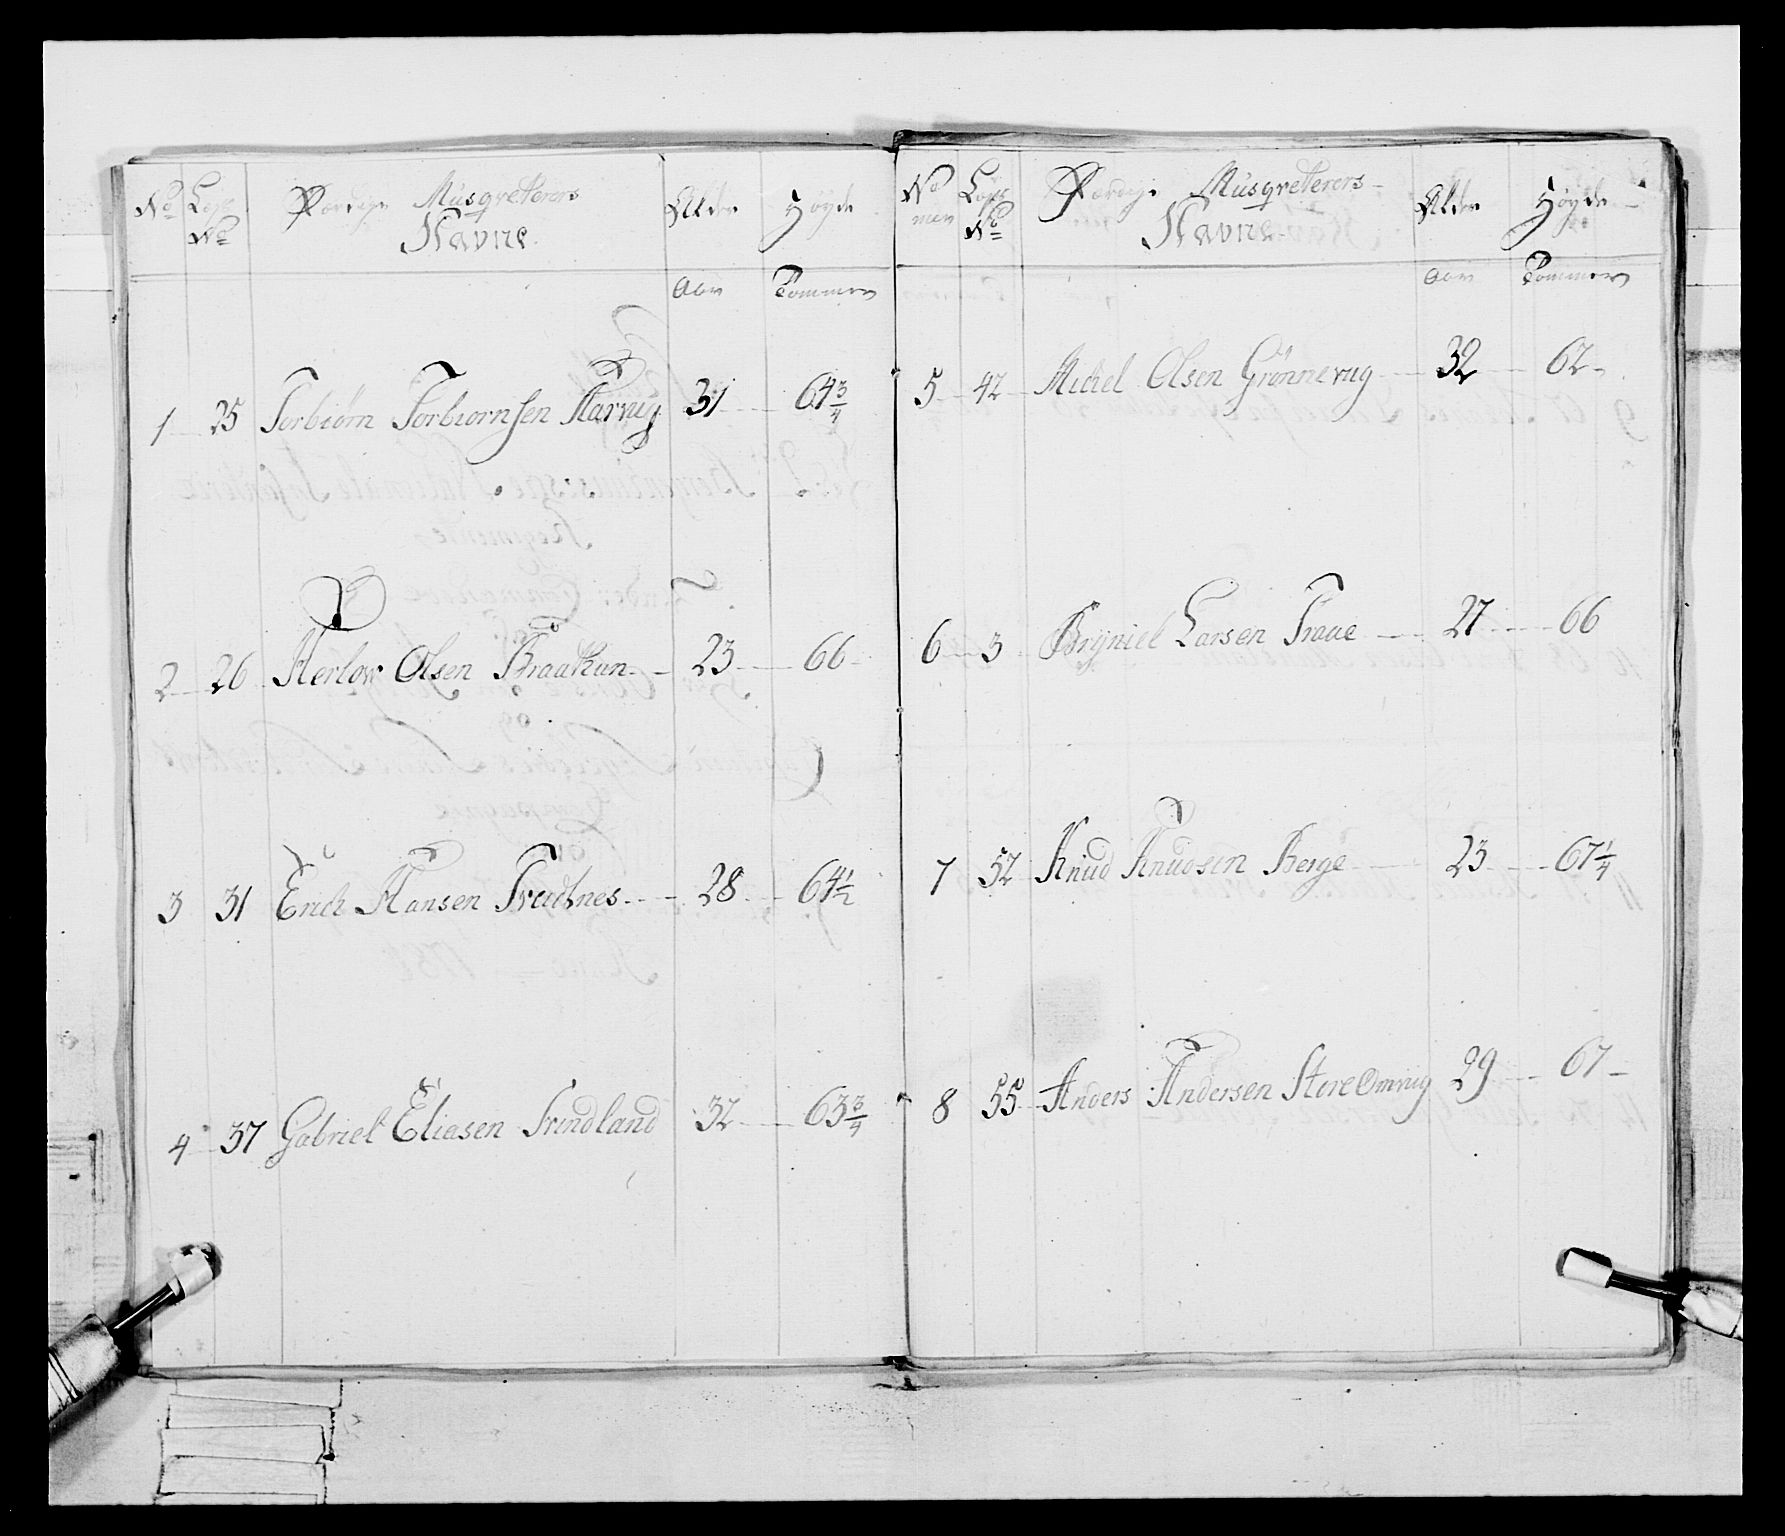 No Lægs No Færdige Musqveterers Navne Alder Høyde
Aar Tommer
1 25 Torbiørn Torbiørnsen Aarrug 31 64 3/4
2 26 Herlow Olsen Braathun 23 66
3 31 Erich Hansen Træidnes 28 64 1/2
4 37 Gabriel Eliasen Svindland 32 63 3/4
No mer Lægs No Færdige Musqveterers Navne Alder Høyde
Aar Tommer
5 42 Michel Olsen Grönnerug 32 62
6 3 Bryniel Larsen Traae 27 66
7 52 Knud Knudsen Berge 23 67 1/4
8 55 Anders Andersen Store Omrug 29 67